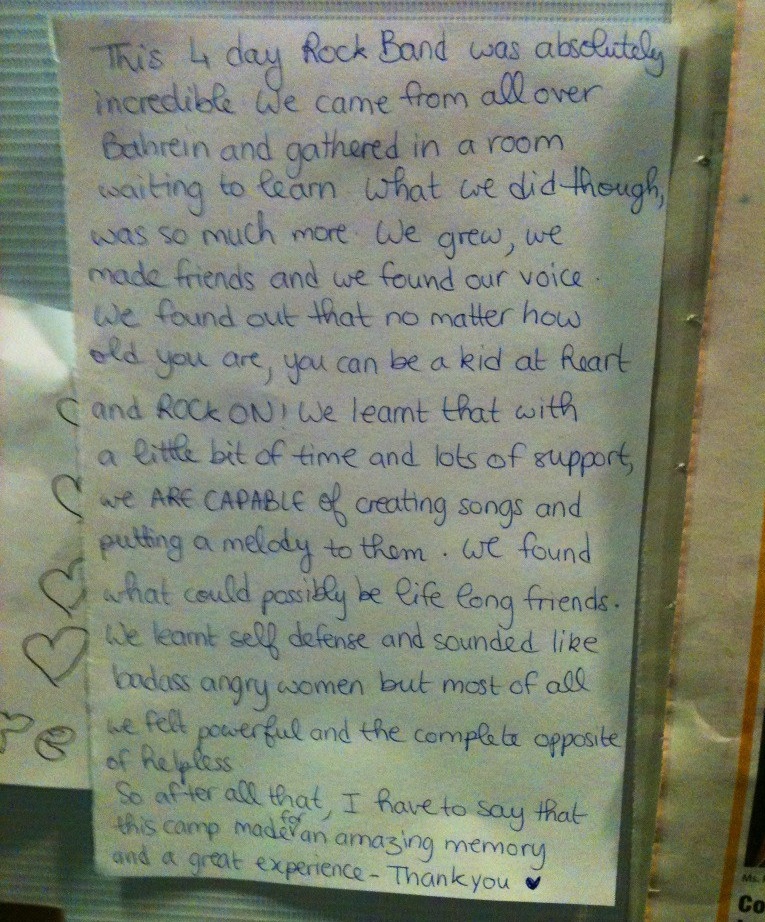 This 4 day Rock Band was absolutely
incredible. We came from all over
Bahrein and gathered in a room
waiting to learn. What we did though,
was so much more. We grew, we
made friends and we found our voice.
We found out that no matter how
old you are, you can be a kid at heart
and ROCK ON! We learnt that with
a little bit of time and lots of support,
we ARE CAPABLE of creating songs and
putting a melody to them. We found
what could possibly be life long friends.
We learnt self defense and sounded like
badass angry women but most of all
we felt powerful and the complete opposite
of helpless
So after all that, I have to say that
this camp made for an amazing memory
and a great experience - Thank you ♥
Ms.
Co